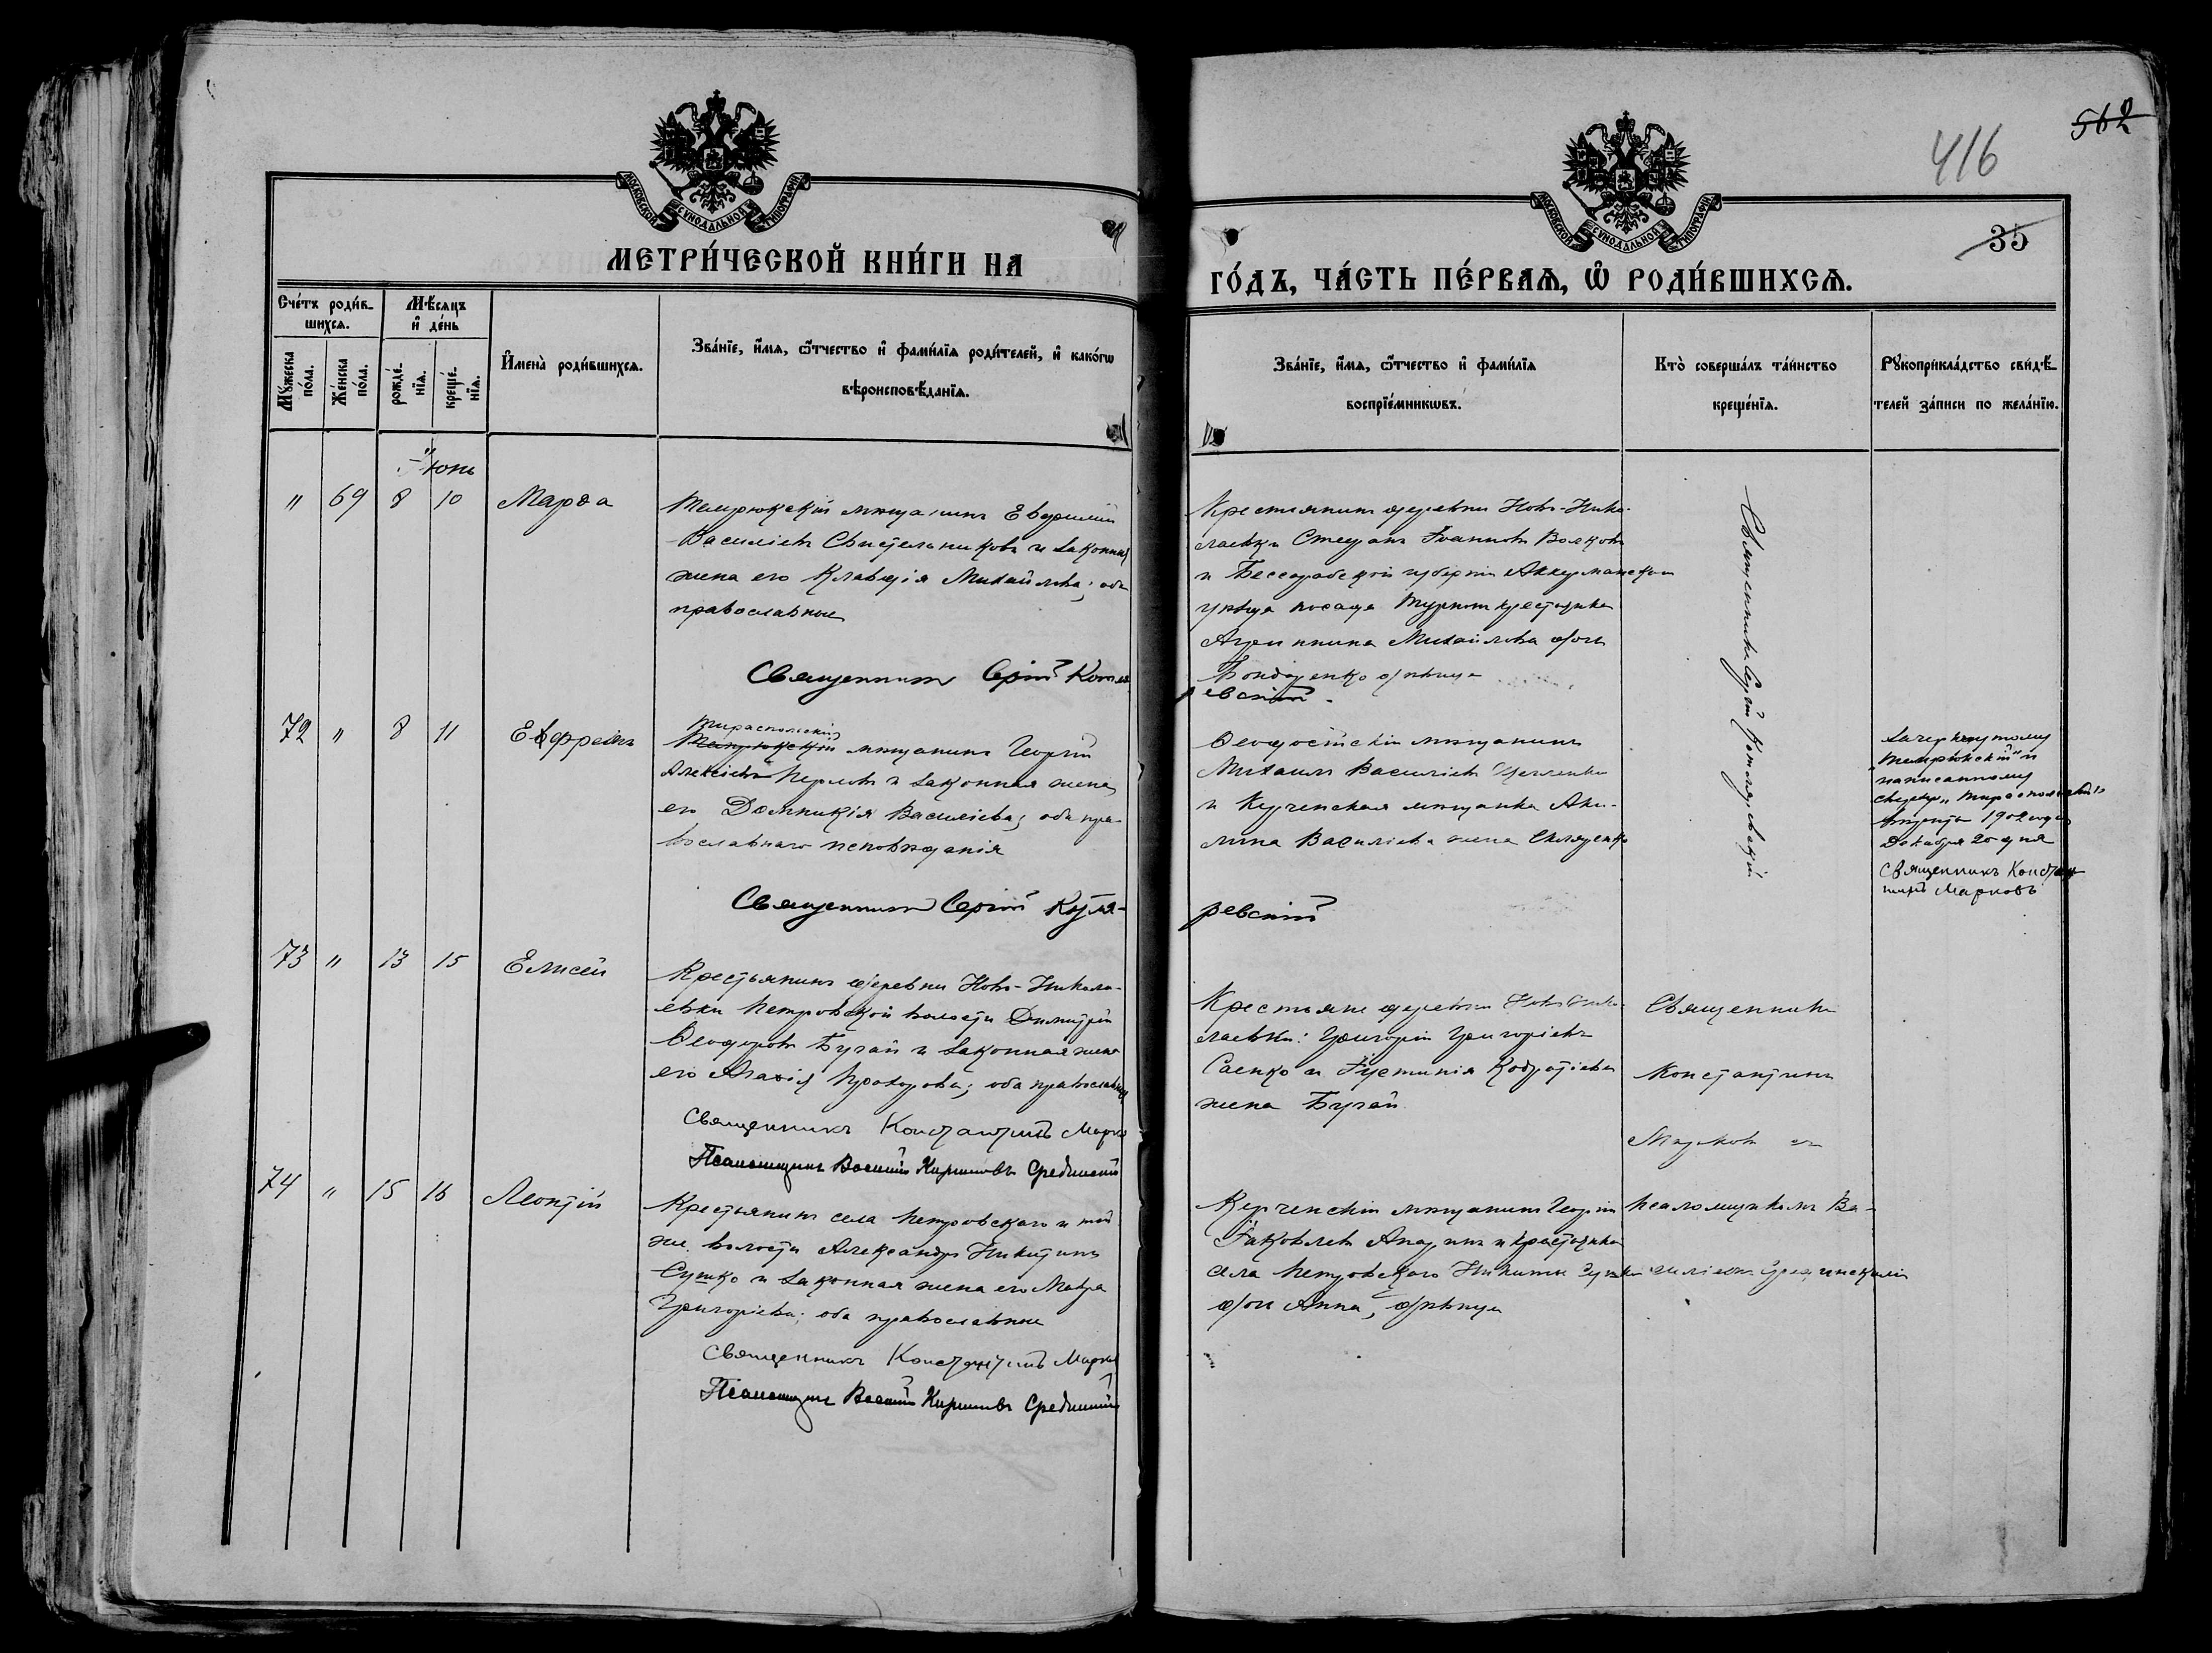 562
416
35
МОСКОВСКОЙ СѴНОДАЛЬНОЙ ТИПОГРАФІИ
МОСКОВСКОЙ СѴНОДАЛЬНОЙ ТИПОГРАФІИ
МЕТРИ́ЧЕСКОЙ КНИ́ГИ НА
ГО́ДЪ, ЧА́СТЬ ПЕ́РВАЯ, Ѡ РОДИ́ВШИХСЯ.
Сче́тъ роди́в-
шихся.
Мѣсяцъ
и де́нь
Мꙋжеска по́ла.
Же́нска по́ла.
рожде́-
нїя.
креще́-
нїя.
Имена̀ роди́вшихся.
Зва́нїе, и́мя, ѻ҆́тчество и фами́лїя роди́телей, и како́гѡ
вѣроисповѣ́данїя.
Зва́нїе, и́мя, ѻ҆́тчество и фами́лїя
воспрїе́мникѡвъ.
Кто̀ соверша́лъ та́инство
креще́нїя.
Рꙋкоприкла́дство свидѣ́-
телей за́писи по жела́нїю.
Іюнь
" 69 8 10 Марѳа
Темрюкскій мѣщанинъ Евфимій
Василіевъ Свистельниковъ и законная
жена его Клавдія Михайлова; оба
православные
Священникъ Сергій Котля-
ревскій.
Крестьянинъ деревни Ново-Нико-
лаевки Стефанъ Іоанновъ Волковъ
и Бессарабской губерніи Аккерманскаго
уѣзда посада крестьянка
Агриппина Михайлова дочь
Бондаренко дѣвица
Священникъ Сергій Котляревскій
72 " 8 11 Евфреімъ
Тираспольскій
Темрюкскій мѣщанинъ Георгій
Алексіевъ и законная жена
его Домникія Василіева; оба пра-
вославнаго исповѣданія
Священникъ Сергій Котля-
ревскій
Ѳеодосійскій мѣщанинъ
Михаилъ Василіевъ
и Керченская мѣщанка Аки-
лина Василіева жена
Зачеркнутому
"Темрюкскій" и
написанному
сверху "Тираспольскій"
1902 года
Декабря 20 дня
Священникъ Констан-
тинъ Марковъ
73 " 13 15 Елисей
Крестьянинъ деревни Ново-Никола-
евки Петровской волости Димитрій
Ѳеодоровъ Бугай и законная жена
его Агаѳія Прохорова; оба православные
Священникъ Константинъ Марковъ
Псаломщикъ Василій Кирилловъ Срединскій
Крестьяне деревни Ново-Нико-
лаевки: Григорій Григоріевъ
Саенко и Іустинія Кодратіева
жена Бугай
Священникъ
Константинъ
Марковъ съ
74 " 15 16 Леонтій
Крестьянинъ села Петровскаго и той
же волости Александръ Никитинъ
Сушко и законная жена его Мавра
Григоріева; оба православные
Священникъ Константинъ Марковъ
Псаломщикъ Василій Кирилловъ Срединскій
Керченскій мѣщанинъ Георгій
Іаковлевъ и крестьянка
села Петровскаго Никиты Сушко
дочь Анна, дѣвица
псаломщикомъ Ва-
силіемъ Срединскимъ